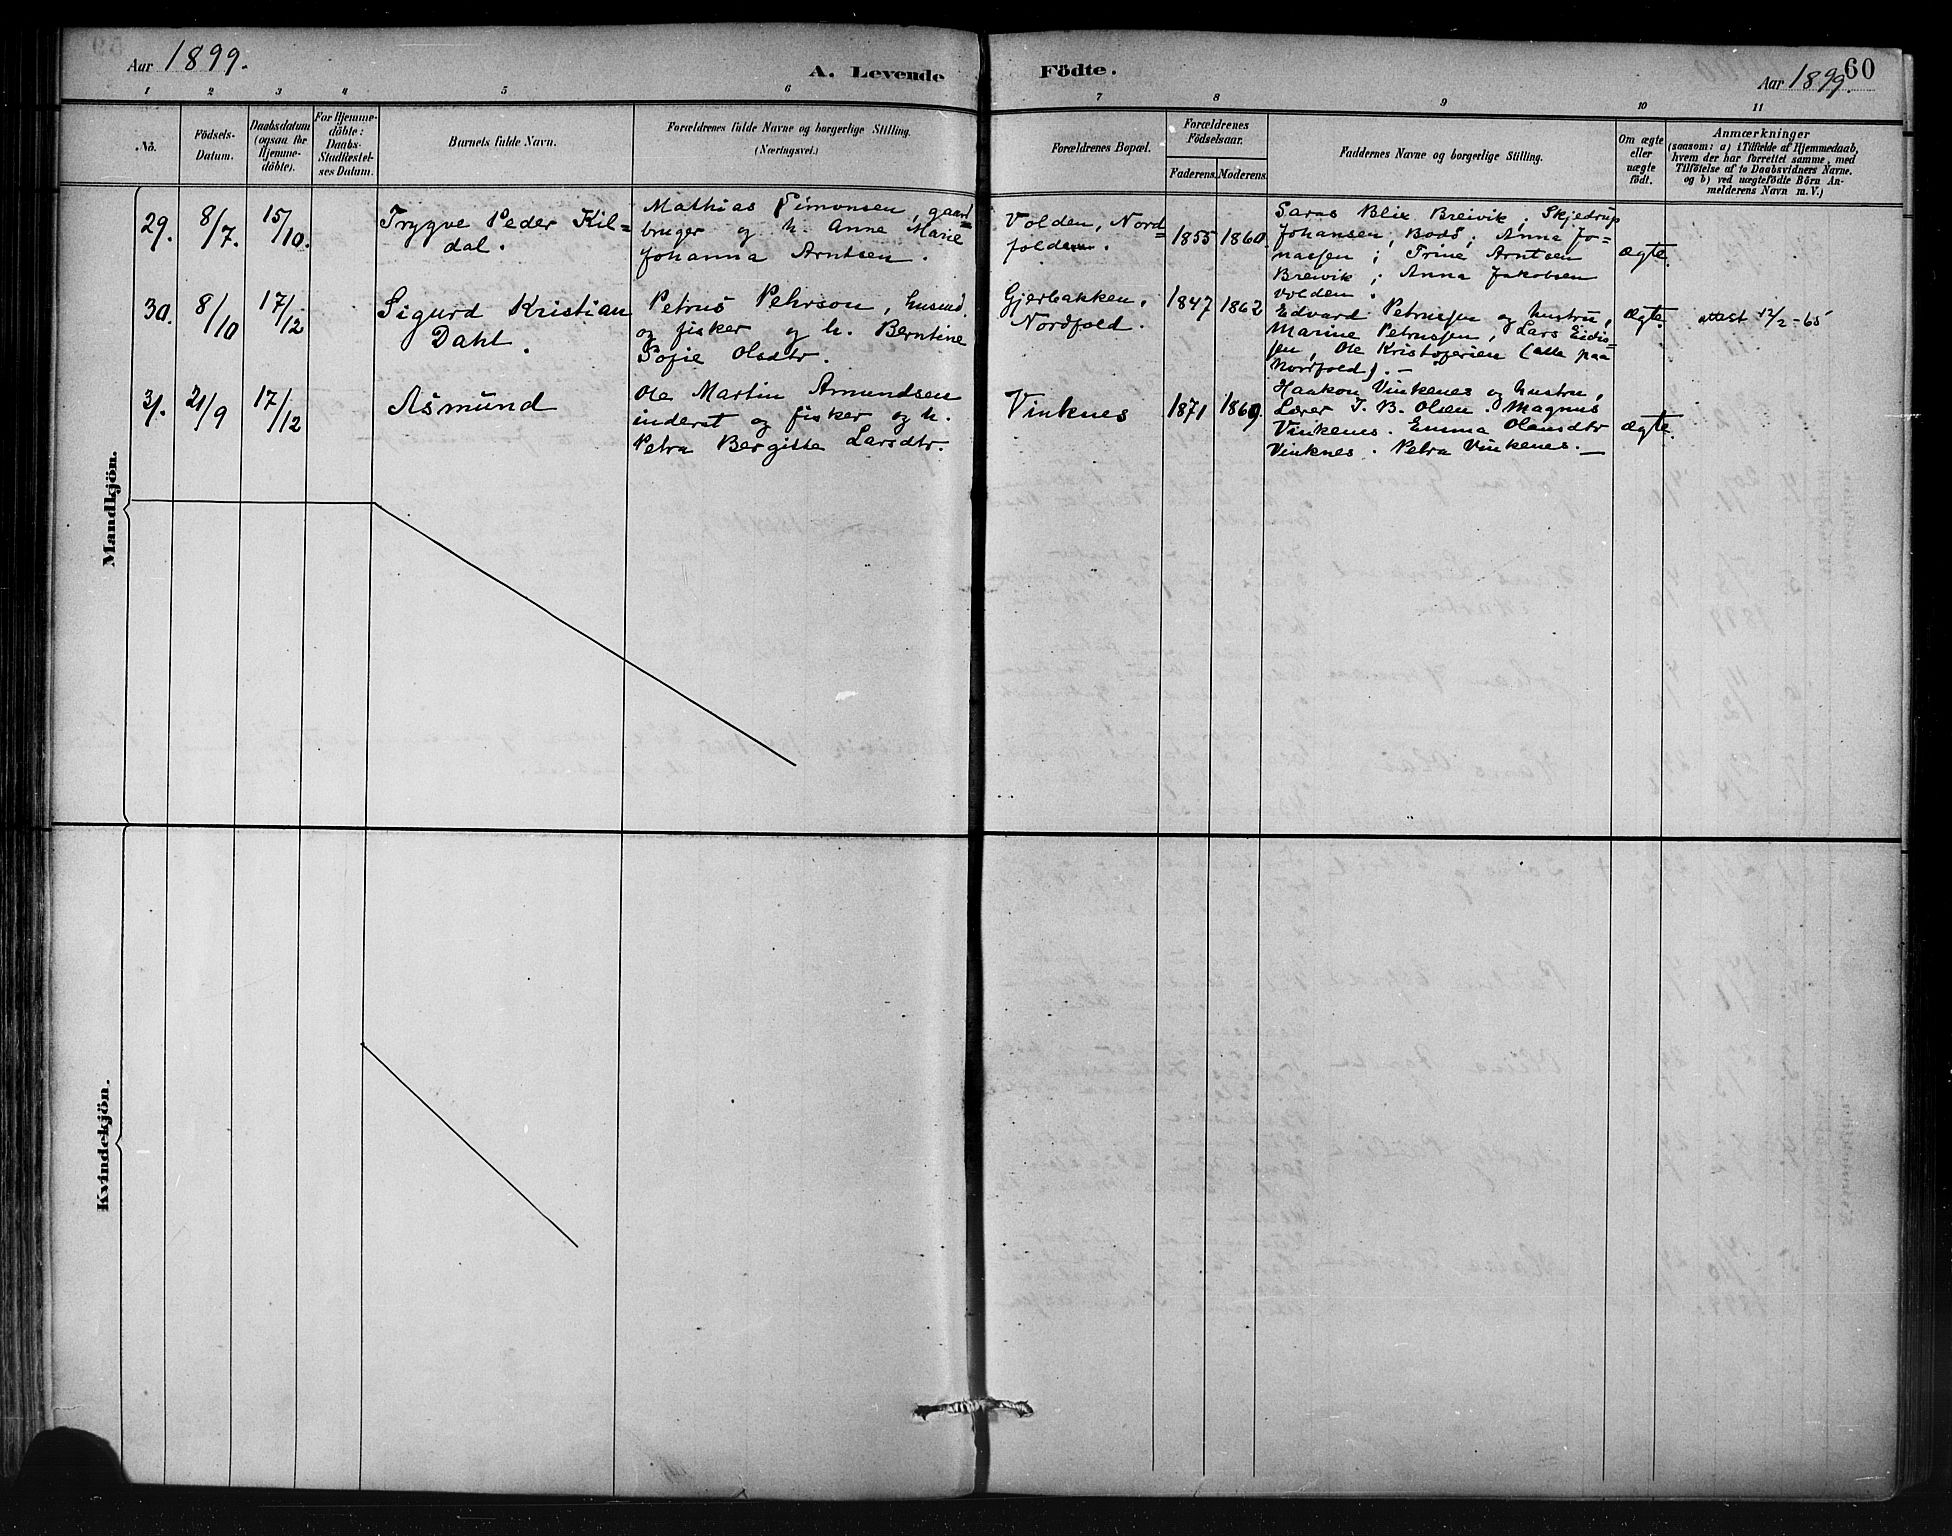 Aar 1899.
A. Levende Födte.
Aar 1899.
60
1 2 3 4 5 6 7 8 9 10 11
No.
Födsels-
Datum.
Daabsdatum
(ogsaa for
Hjemme-
döbte).
For Hjemme-
döbte:
Daabs-
Stadfæstel-
ses Datum.
Barnets fulde Navn.
Forældrenes fulde Navne og borgerlige Stilling.
(Næringsvei.)
Forældrenes Bopæl.
Forældrenes
Födselsaar.
Faderens. Moderens.
Faddernes Navne og borgerlige Stilling.
Om ægte
eller
uægte
født.
Anmærkninger
(saasom: a) i Tilfælde af Hjemmedaab,
hvem der har forrettet samme, med
Tilföielse af to Daabsvidners Navne,
og b) ved uægtefödte Börn An-
melderens Navn m. V.)
Mandkjön.
29.
8/7.
15/10.
Trygve Peder Kil-
dal.
Mathias Simonsen, gaard-
bruger og h. Anne Marie
Johanna Arntsen.
Volden, Nord-
folden.
1855
1860
Saras Blix Breivik; Skjedrup
Johansen, Bodö; Anna Jo-
nassen; Trine Arntsen
Breivik; Anna Jakobsen
Volden.
Ægte.
30.
8/10
17/12
Sigurd Kristian
Dahl.
Petrus Pehrson, husmd.
og fisker og h. Berntine
Sofie Olsdtr.
Gjerbakken,
Nordfold.
1847
1862
Edvard Petrussen og hustru,
Marine Petrussen, Lars Eidis-
sen, Ole Kristofersen (alle paa
Nordfold). —
Ægte.
attest 12/2-65
31.
21/9
17/12
Asmund
Ole Martin Amundsen
inderst og fisker og h.
Petra Bergitte Larsdtr.
Vinknes
1871
1869.
Haakon Vinkenes og hustru,
Lærer J. B. Olsen. Magnus
Vinkenes. Emma Olausdtr
Vinknes. Petra Vinkenes. —
Ægte.
Kvindekjön.